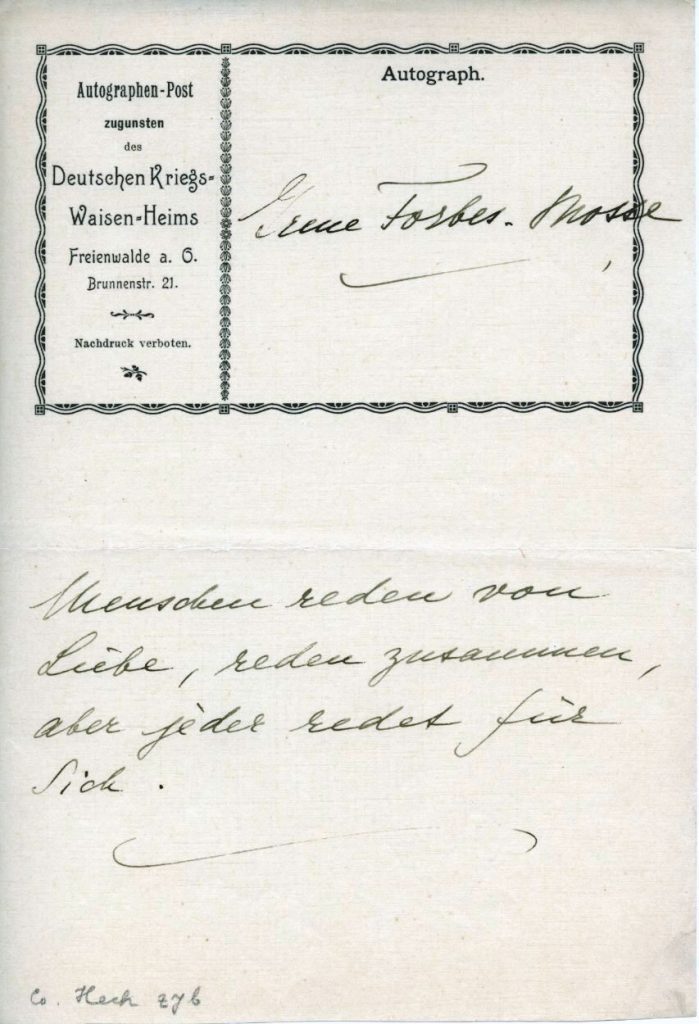 Autographen-Post
zugunsten
des
Deutschen Kriegs-
Waisen-Heims
Freienwalde a. O.
Brunnenstr. 21.
Nachdruck verboten.
Autograph.
Irene Forbes-Mosse
Menschen reden von
Liebe, reden zusammen,
aber jeder redet für
Sich.
Co. Heck